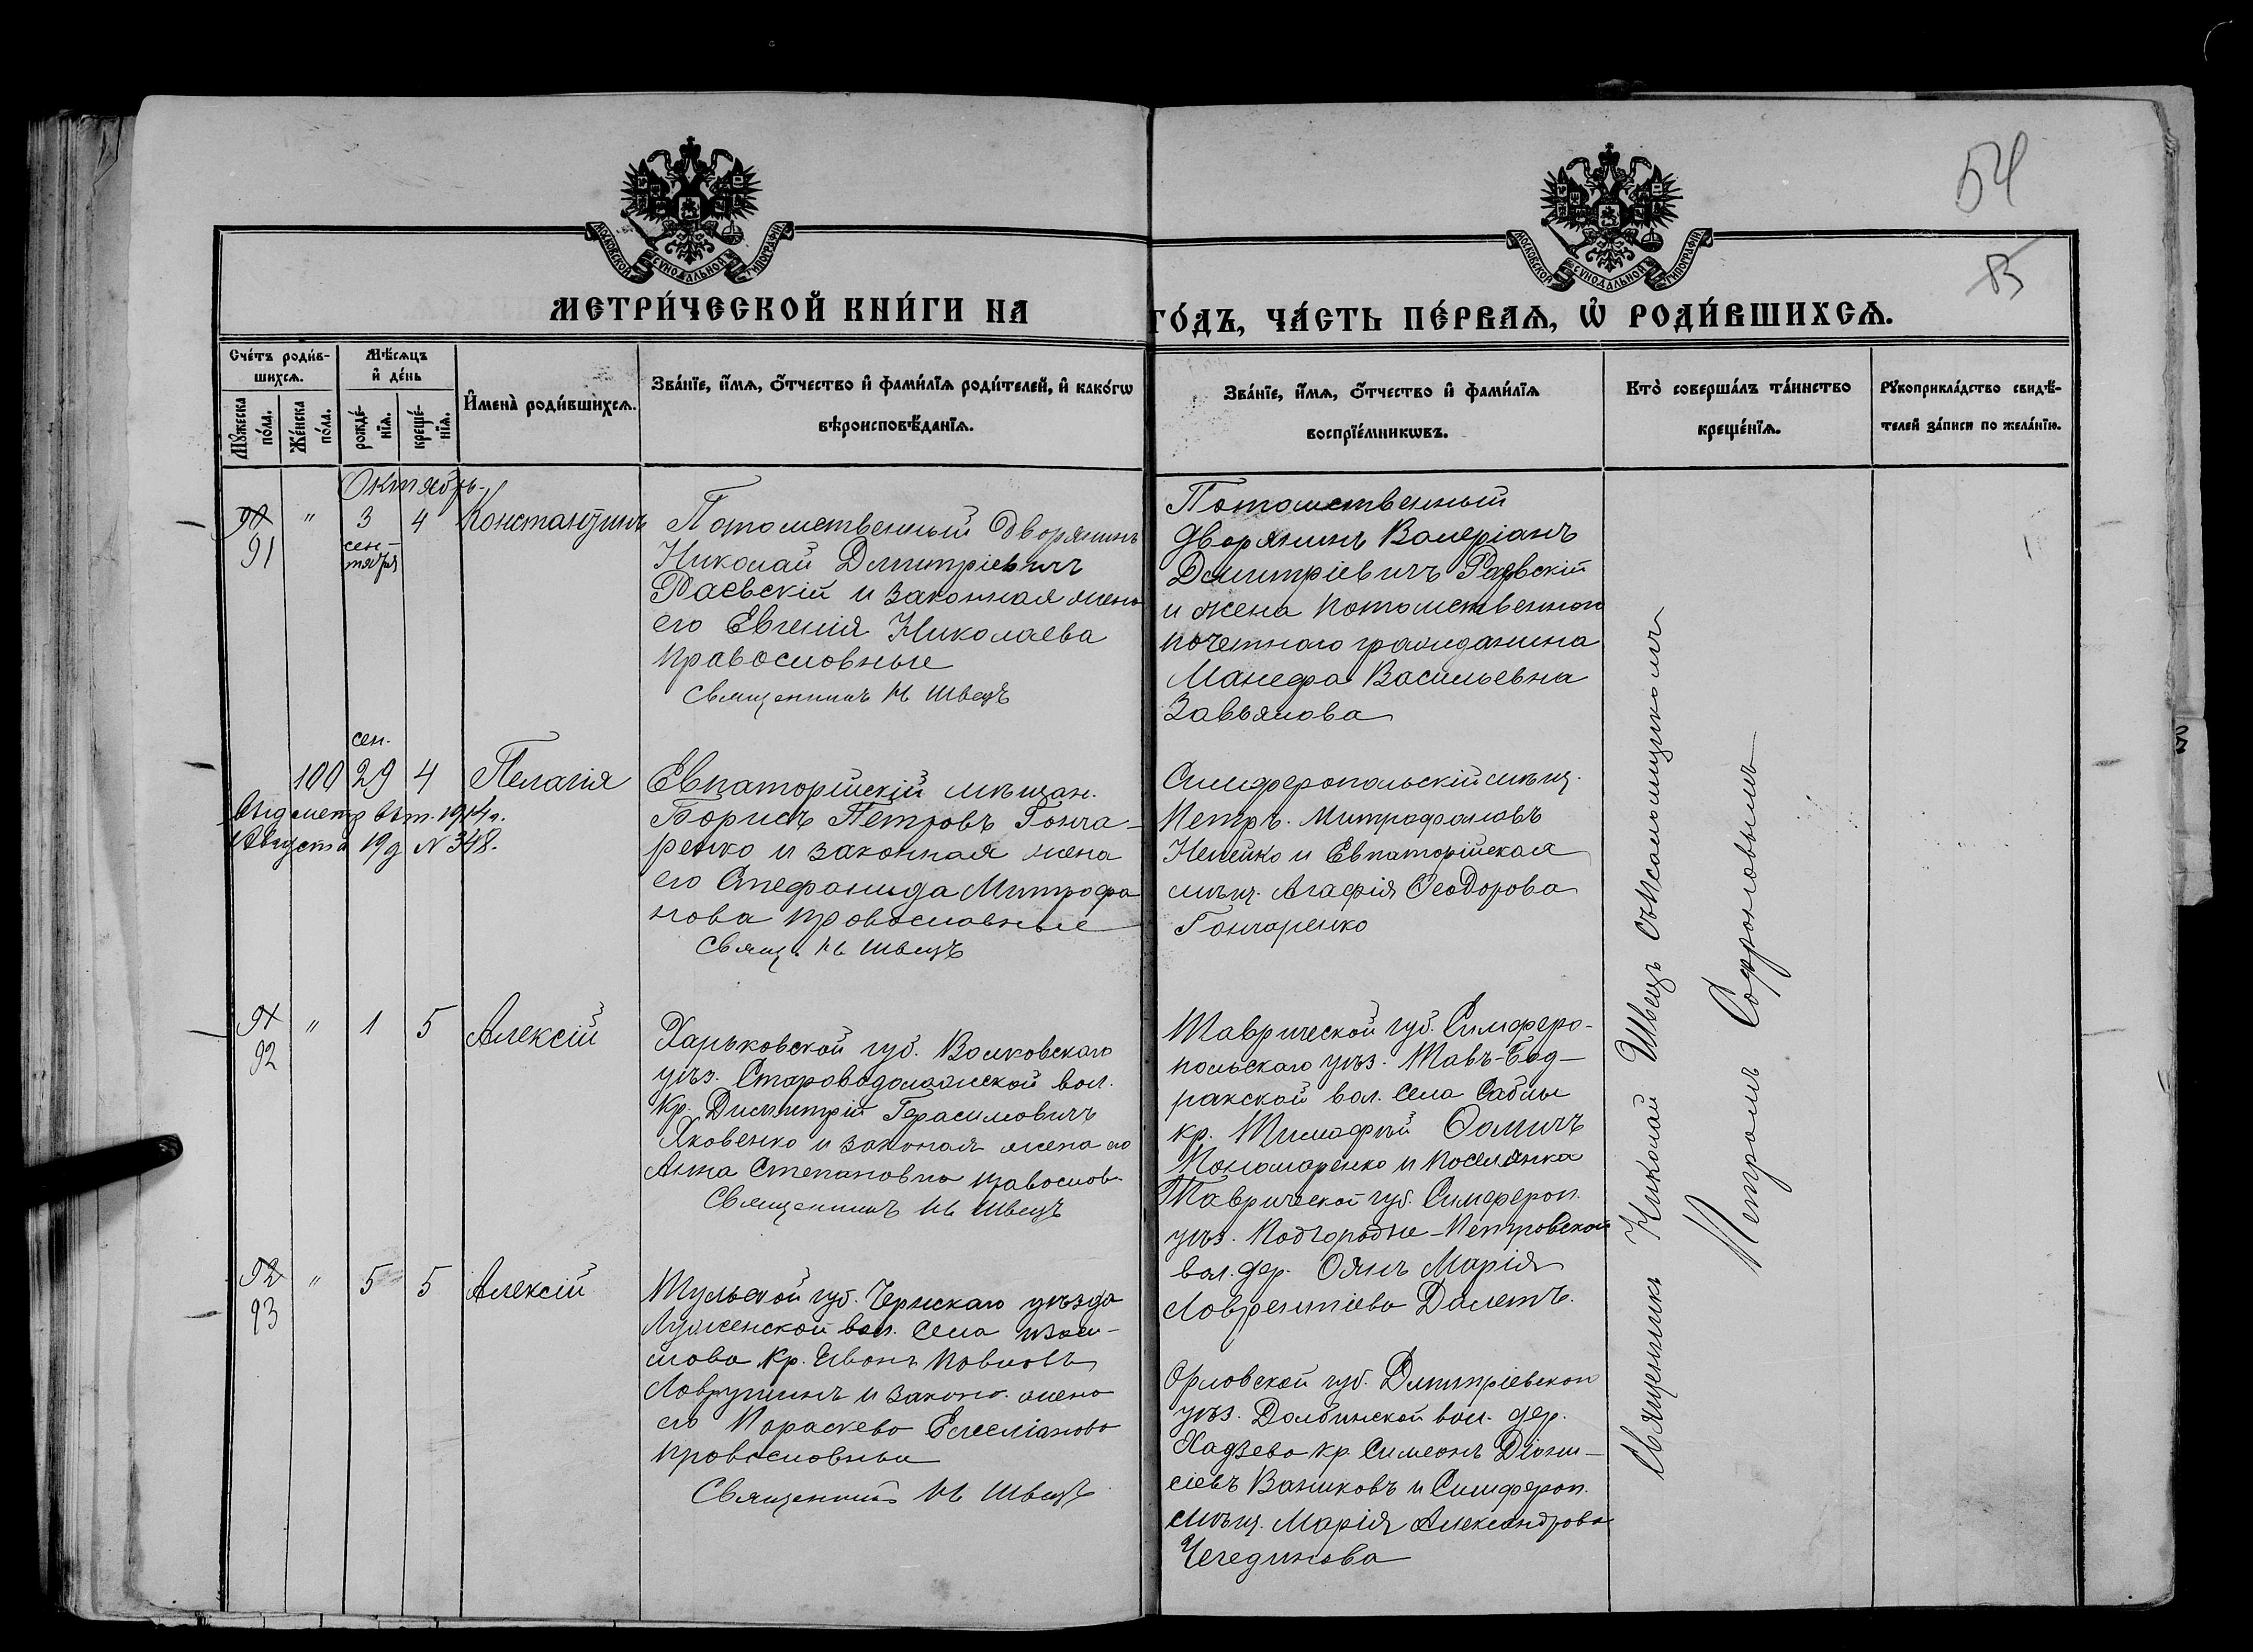 54
В
МОСКОВСКОЙ СѴНОДАЛЬНОЙ ТИПОГРАФІИ
МОСКОВСКОЙ СѴНОДАЛЬНОЙ ТИПОГРАФІИ
МЕТРИ́ЧЕСКОЙ КНИ́ГИ НА ГО́ДЪ, ЧА́СТЬ ПЕ́РВАѦ, Ѽ РОДИ́ВШИХСѦ.
Сче́тъ роди́в-
шихсѧ.
Мꙋ́жеска по́ла.
Же́нска по́ла.
Мѣ́сѧцъ
и҆ де́нь
рожде́-нїѧ.
креще́-нїѧ.
И҆мена̀ роди́вшихсѧ.
Зва́нїе, и҆́мѧ, ѻ҆́тчество и҆ фами́лїѧ роди́телей, и҆ како́гѡ
вѣроисповѣ́данїѧ.
Зва́нїе, и҆́мѧ, ѻ҆́тчество и҆ фами́лїѧ
воспрїе́мникѡвъ.
Кто̀ соверша́лъ та́инство
креще́нїѧ.
Рꙋкоприкла́дство свидѣ́-
телей за́писи по жела́нїю.
Октябрь
91 " 3 4 Константинъ
сен-
тября
Потомственный дворянинъ
Николай Димитріевичъ
Раевскій и законная жена
его Евгенія Николаева
православные
Священникъ Н Швецъ
Потомственный
дворянинъ Валеріанъ
Димитріевичъ Раевскій
и жена потомственнаго
почетнаго гражданина
Манефа Васильевна
Завьялова
сен.
100 29 4 Пелагія
Выд метр вып. 1914 г.
Августа 19 д № 348.
Евпаторійскій мѣщан.
Борисъ Петровъ Гонча-
ренко и законная жена
его Стефанида Митрофа
нова православные
Свящ. Н Швецъ
Симферопольскій мѣщ.
Петръ Митрофановъ
Непейко и Евпаторійская
мѣщ. Агафія Ѳеодорова
Гончаренко
91
92 " 1 5 Алексій
Харьковской губ. Валковскаго
уѣз. Староводолажской вол.
кр. Димитрій Герасимовичъ
Яковенко и законая жена его
Анна Степановна правослов.
Священникъ Н Швецъ
Таврической губ. Симферо-
польскаго уѣз. Тавъ-Бад-
ракской вол. села Саблы
кр. Тимофей Ѳомичъ
Пономаренко и поселянка
Таврической губ. Симфероп.
уѣз. Подгородне-Петровской
вол. дер. Оянъ Марія
Лаврентіева Далетъ.
92
93 " 5 5 Алексій
Тульской губ. Чернскаго уѣзда
вол. села
кр. Иванъ Павловъ
Лаврушинъ и законн. жена
его Параскева Емеліанова
православныи
Священникъ Н Швецъ
Орловской губ. Димитріевскаго
уѣз. Долбинской вол. дер.
кр. Симеонъ Діони-
сіевъ и Симфероп.
мѣщ. Марія Александрова
Священникъ Николай Швецъ съ псаломщикомъ
Петромъ Софроновымъ